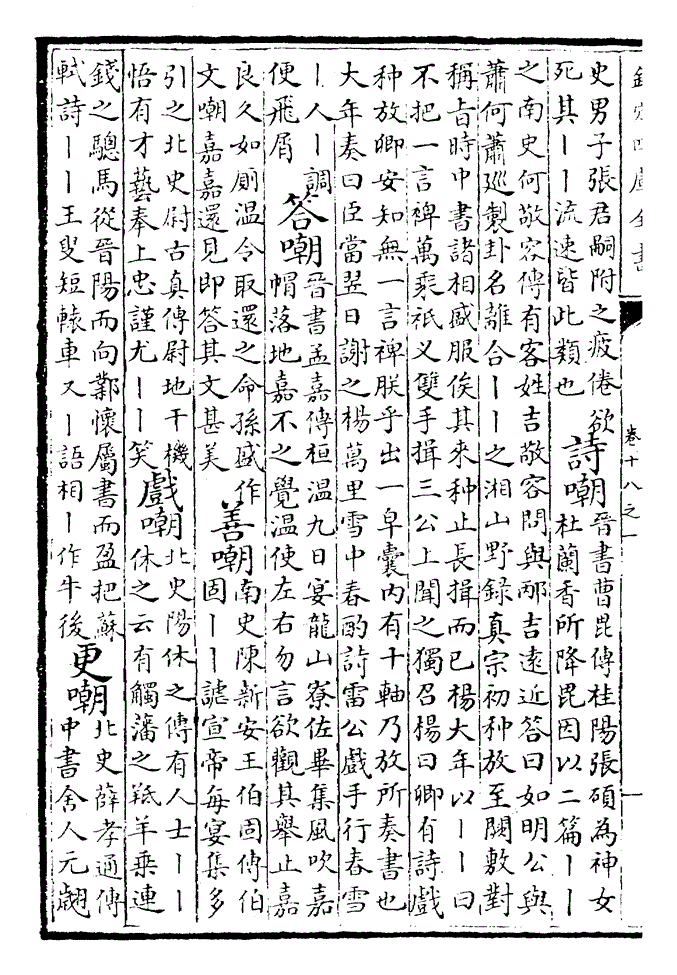 欽定四庫全書
卷十八之一
史男子張君嗣附之疲倦欲
死其丨丨流速皆此類也
詩嘲
晉書曹毘傳桂陽張碩為神女
杜蘭香所降毘因以二篇丨丨
之南史何敬容傳有客姓吉敬容問與邴吉逺近答曰如明公與
蕭何蕭廵製卦名離合丨丨之湘山野録真宗初种放至闕敷對
稱旨時中書諸相盛服俟其來种止長揖而已楊大年以丨丨曰
不把一言裨萬乘祇乂雙手揖三公上聞之獨召楊曰卿有詩戲
种放卿安知無一言裨朕乎出一皁囊内有十軸乃放所奏書也
大年奏曰臣當翌日謝之楊萬里雪中春酌詩雷公戲手行春雪
丨人丨調
便飛屑
答嘲
晉書孟嘉傳桓温九日宴龍山寮佐畢集風吹嘉
帽落地嘉不之覺温使左右勿言欲觀其舉止嘉
良久如厠温令取還之命孫盛作
文嘲嘉嘉還見即答其文甚美
善嘲
南史陳新安王伯固傳伯
固丨丨謔宣帝每宴集多
引之北史尉古真傳尉地干機
悟有才藝奉上忠謹尤丨丨笑
戲嘲
北史陽休之傳有人士丨丨
休之云有觸藩之羝羊乘連
錢之驄馬從晉陽而向鄴懷屬書而盈把蘇
軾詩丨丨王叟短轅車又丨語相丨作牛後
更嘲
北史薛孝通傳
中書舍人元翽